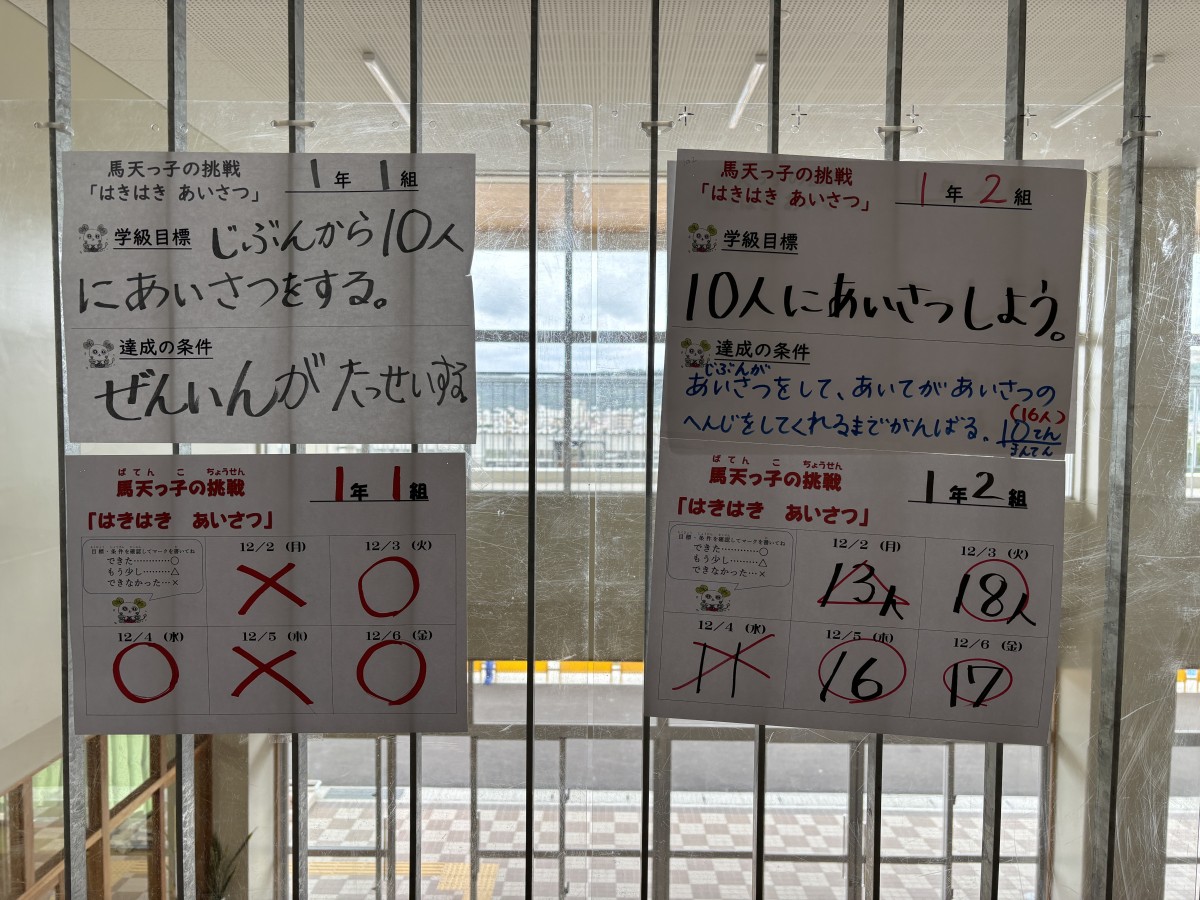 馬天っ子の挑戦
「はきはき あいさつ」
1年 1組
学級目標
じぶんから10人
にあいさつをする。
達成の条件
ぜんいんがたっせいする
ばてん こ ちょうせん
馬天っ子の挑戦
1年 1組
「はきはき あいさつ」
目標・条件を確認してマークを書いてね
できた…………○
もう少し………△
できなかった…×
12/2 (月)
×
12/3 (火)
○
12/4 (水)
○
12/5 (木)
×
12/6 (金)
○
馬天っ子の挑戦
「はきはき あいさつ」
1年 2組
学級目標
10人にあいさつしよう。
達成の条件
じぶんが
あいさつをして、あいてがあいさつの
へんじをしてくれるまでがんばる。
(16人)
10てん
まんてん
ばてん こ ちょうせん
馬天っ子の挑戦
1年2組
「はきはき あいさつ」
目標・条件を確認してマークを書いてね
できた…………○
もう少し………△
できなかった…×
12/2 (月)
13人
12/3 (火)
18人
12/4 (水)
11
12/5 (木)
16
12/6 (金)
17